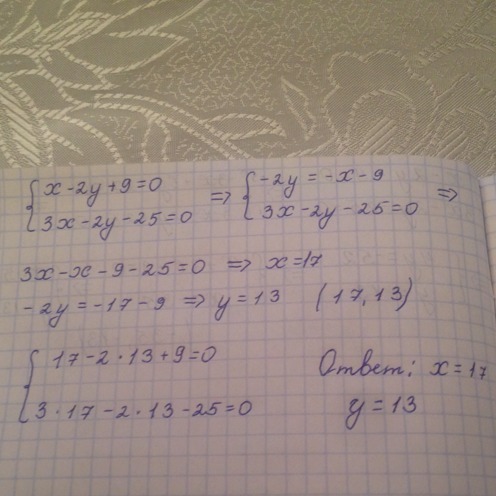 { x - 2y + 9 = 0
3x - 2y - 25 = 0 ⇒ { -2y = -x - 9
3x - 2y - 25 = 0 ⇒
3x - x - 9 - 25 = 0 ⇒ x = 17
-2y = -17 - 9 ⇒ y = 13 (17, 13)
{ 17 - 2 · 13 + 9 = 0
3 · 17 - 2 · 13 - 25 = 0
Ответ: x = 17
y = 13